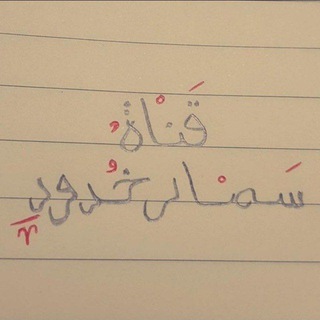 قَناةُ
سَمنار خُدود
٣